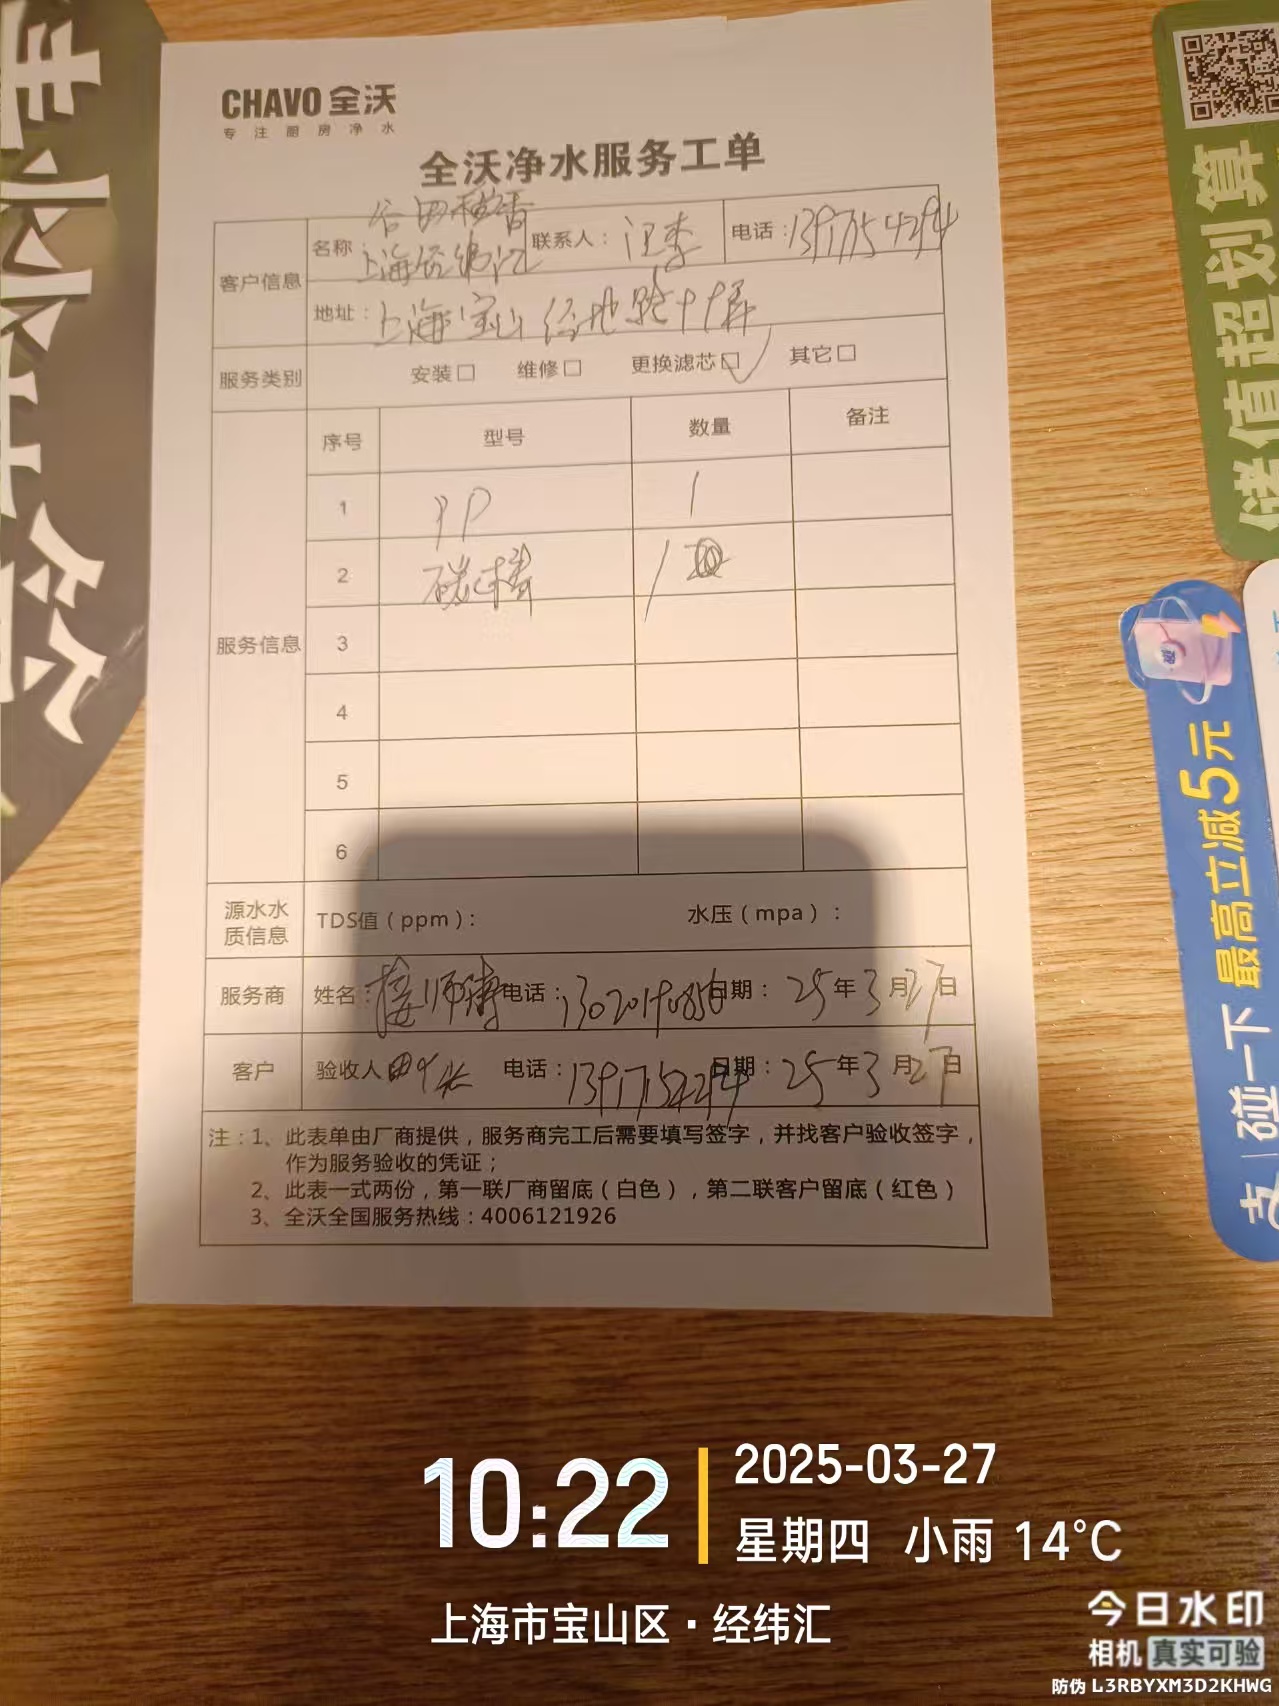 CHAVO 全沃
专注厨房净水
全沃净水服务工单
客户信息
名称 谷田稻香
上海经纬汇
联系人：汪李
电话：
地址：上海宝山
服务类别 安装□ 维修□ 更换滤芯□√ 其它□
服务信息
序号 型号 数量 备注
1 PP 1
2 碳棒 1
3
4
5
6
源水水质信息 TDS值（ppm）： 水压（mpa）：
服务商 姓名： 电话： 日期：25年3月27日
客户 验收人 电话： 日期：25年3月27日
注：1、此表单由厂商提供，服务商完工后需要填写签字，并找客户验收签字，
作为服务验收的凭证；
2、此表一式两份，第一联厂商留底（白色），第二联客户留底（红色）
3、全沃全国服务热线：4006121926
储值超划算
最高立减5元
碰一下
10:22
2025-03-27
星期四 小雨 14°C
上海市宝山区·经纬汇
今日水印
相机 真实可验
防伪 L3RBYXM3D2KHWG